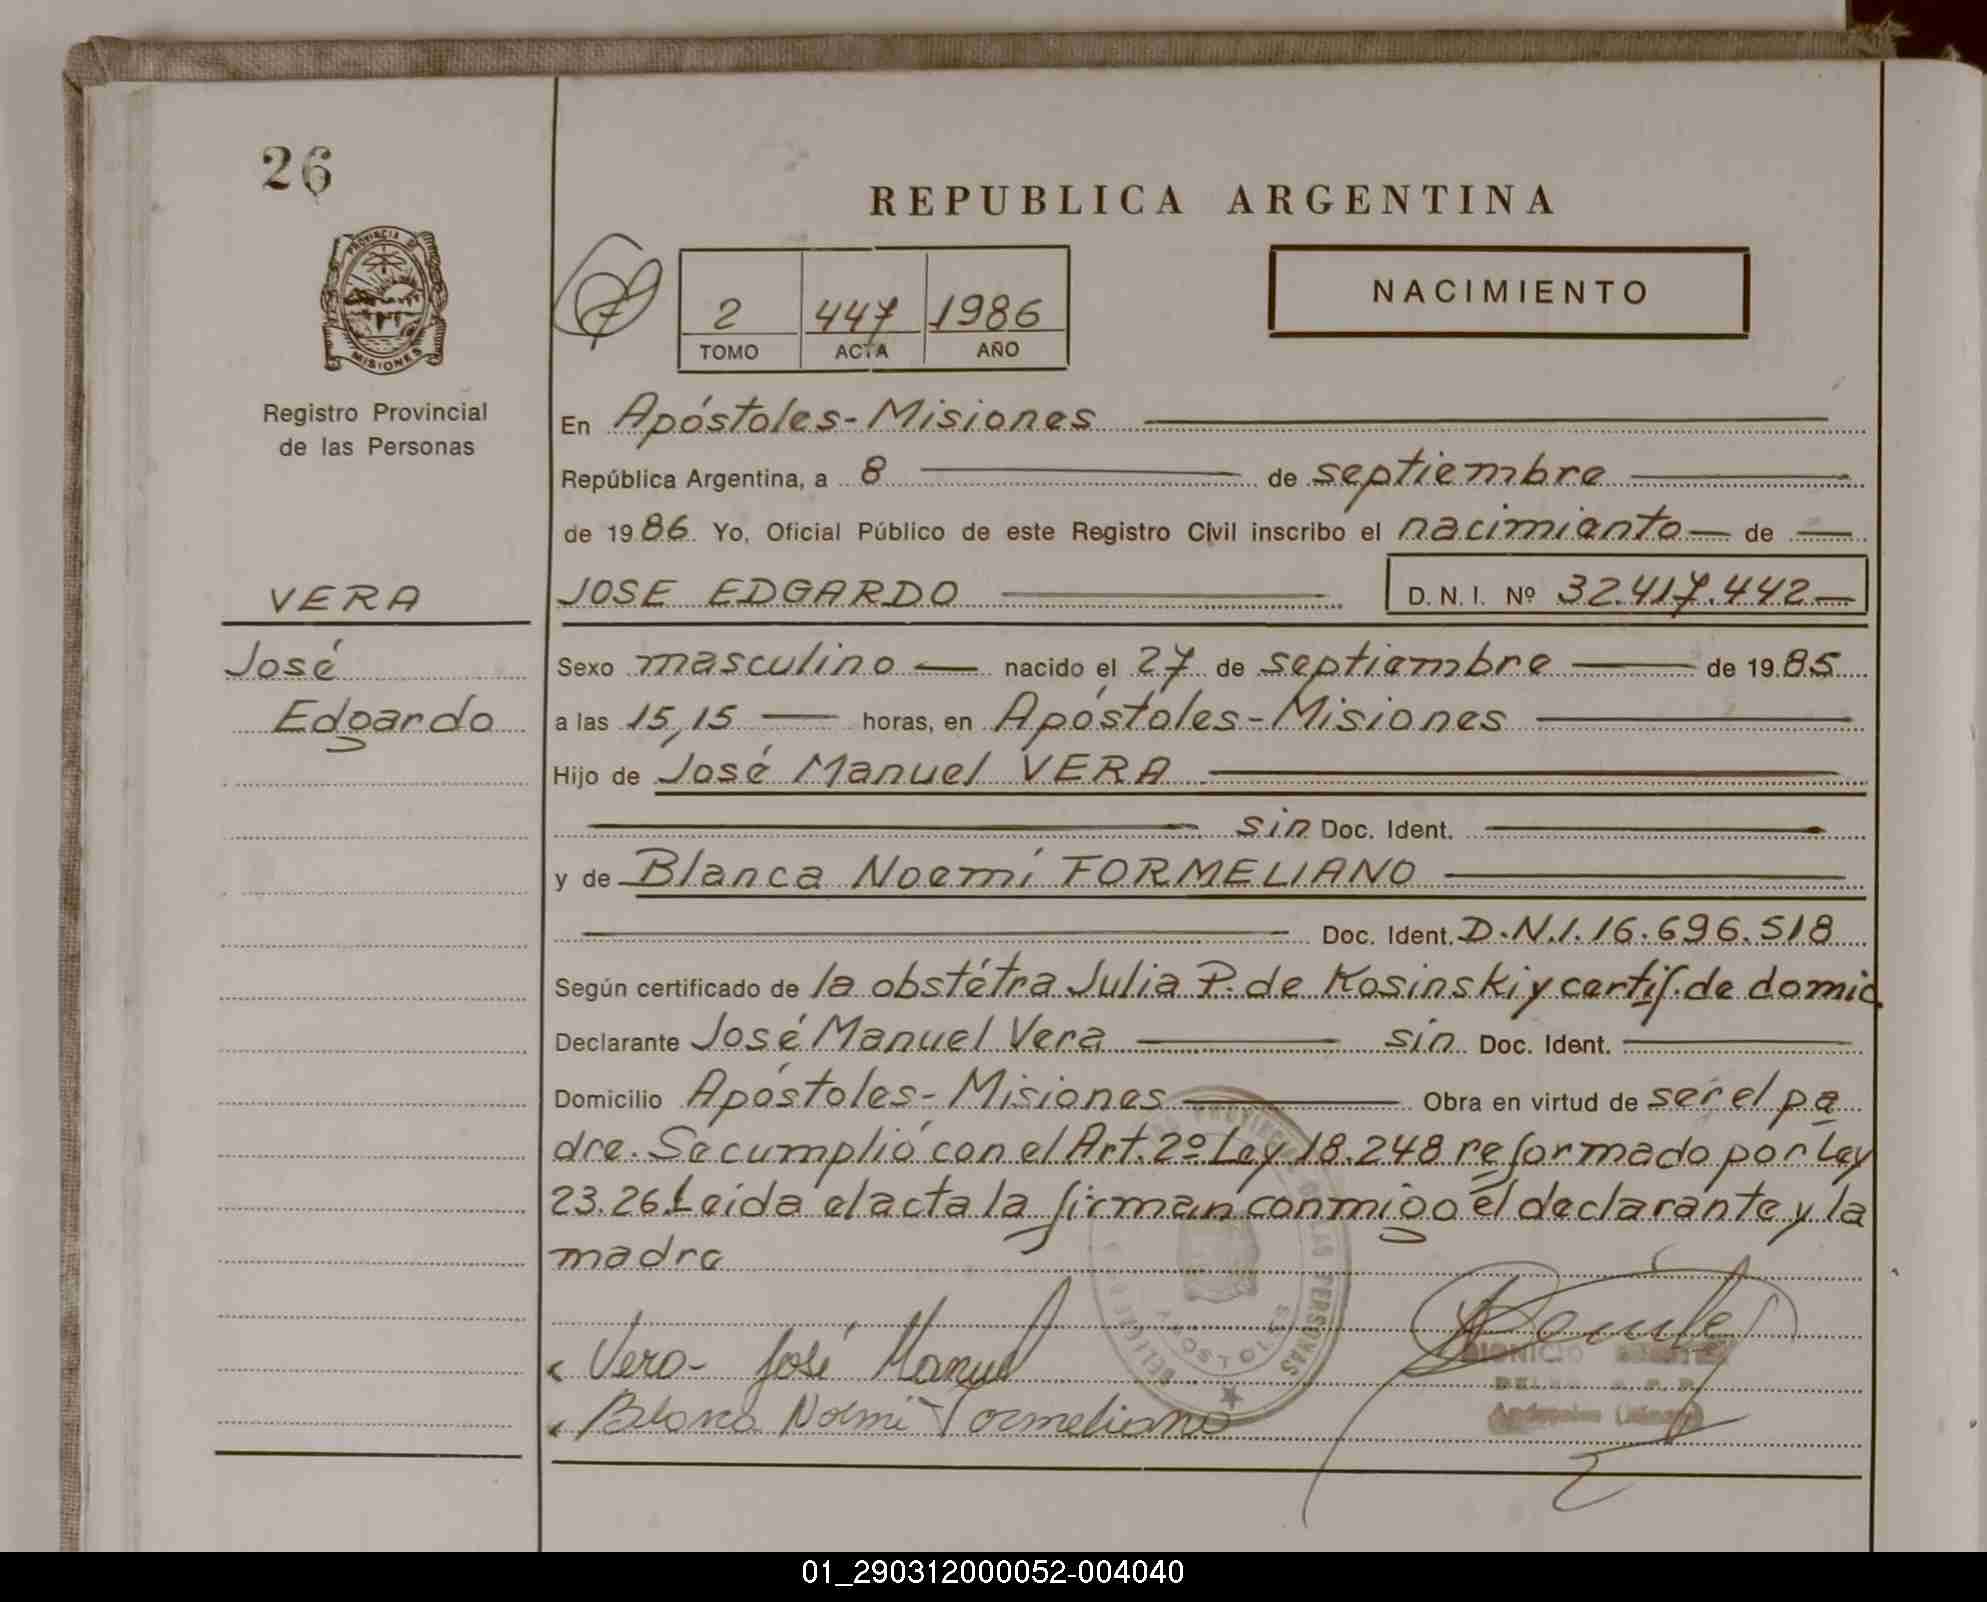 26
REPUBLICA ARGENTINA
PROVINCIA DE
MISIONES
2 447 1986
TOMO ACTA AÑO
NACIMIENTO
Registro Provincial
de las Personas
En Apóstoles-Misiones
República Argentina, a 8 de septiembre
de 1986. Yo, Oficial Público de este Registro Civil inscribo el nacimiento de
VERA
JOSE EDGARDO D.N.I. Nº 32.417.442
José
Sexo masculino nacido el 27 de septiembre de 1985
Edgardo
a las 15,15 horas, en Apóstoles-Misiones
Hijo de José Manuel VERA
sin Doc. Ident.
y de Blanca Noemí FORMELIANO
Doc. Ident. D.N.I. 16.696.518
Según certificado de la obstétra Julia P. de Kosinski y certif. de domic.
Declarante José Manuel Vera sin Doc. Ident.
Domicilio Apóstoles-Misiones Obra en virtud de ser el pa
dre. Se cumplió con el Art. 2º Ley 18.248 reformado por Ley
23.26. Leida el acta la firman conmigo el declarante y la
madre
Vera José Manuel
Blanca Noemi Formeliano
DE LAS PERSONAS
APOSTOLES
DIONICIO
01_290312000052-004040